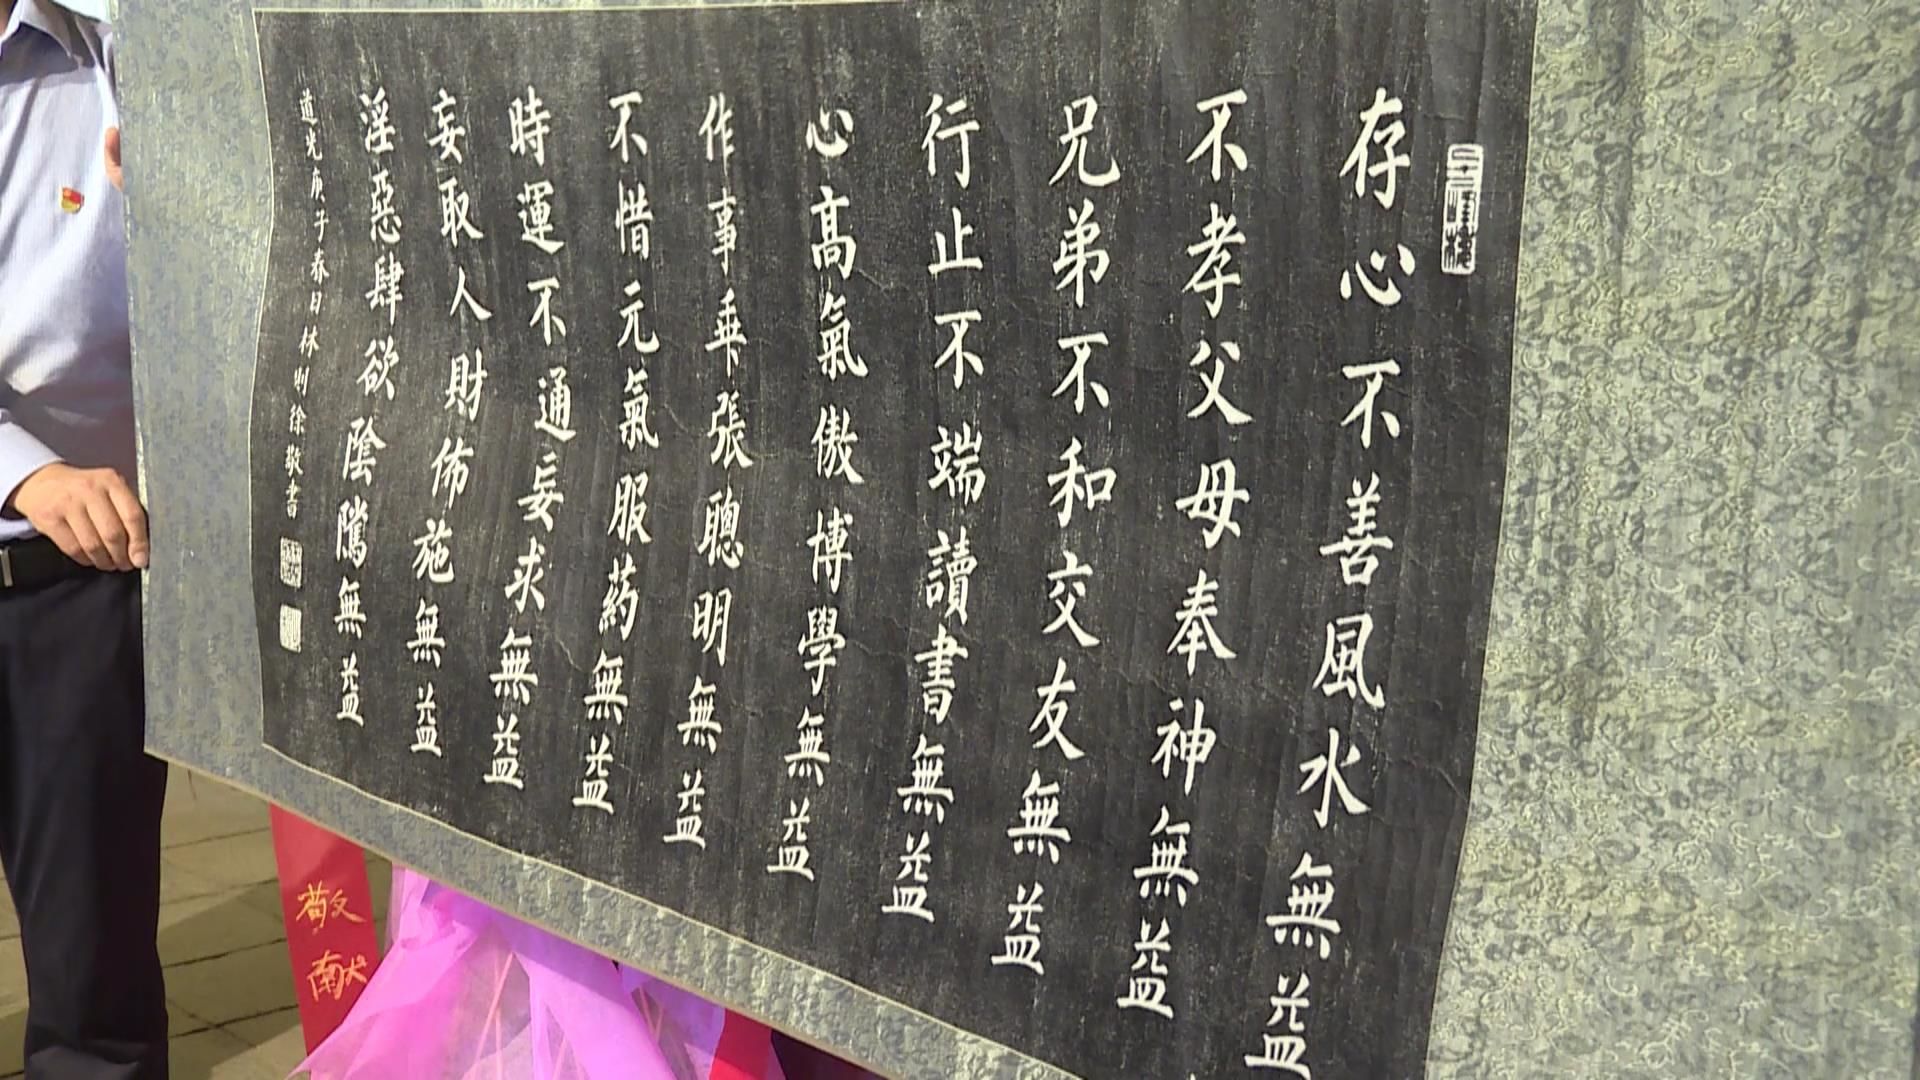 存心不善風水無益
不孝父母奉神無益
兄弟不和交友無益
行止不端讀書無益
心高氣傲博學無益
作事乖張聰明無益
不惜元氣服药無益
時運不通妄求無益
妄取人財佈施無益
淫惡肆欲陰隲無益
道光庚子春日林則徐敬書
敬献